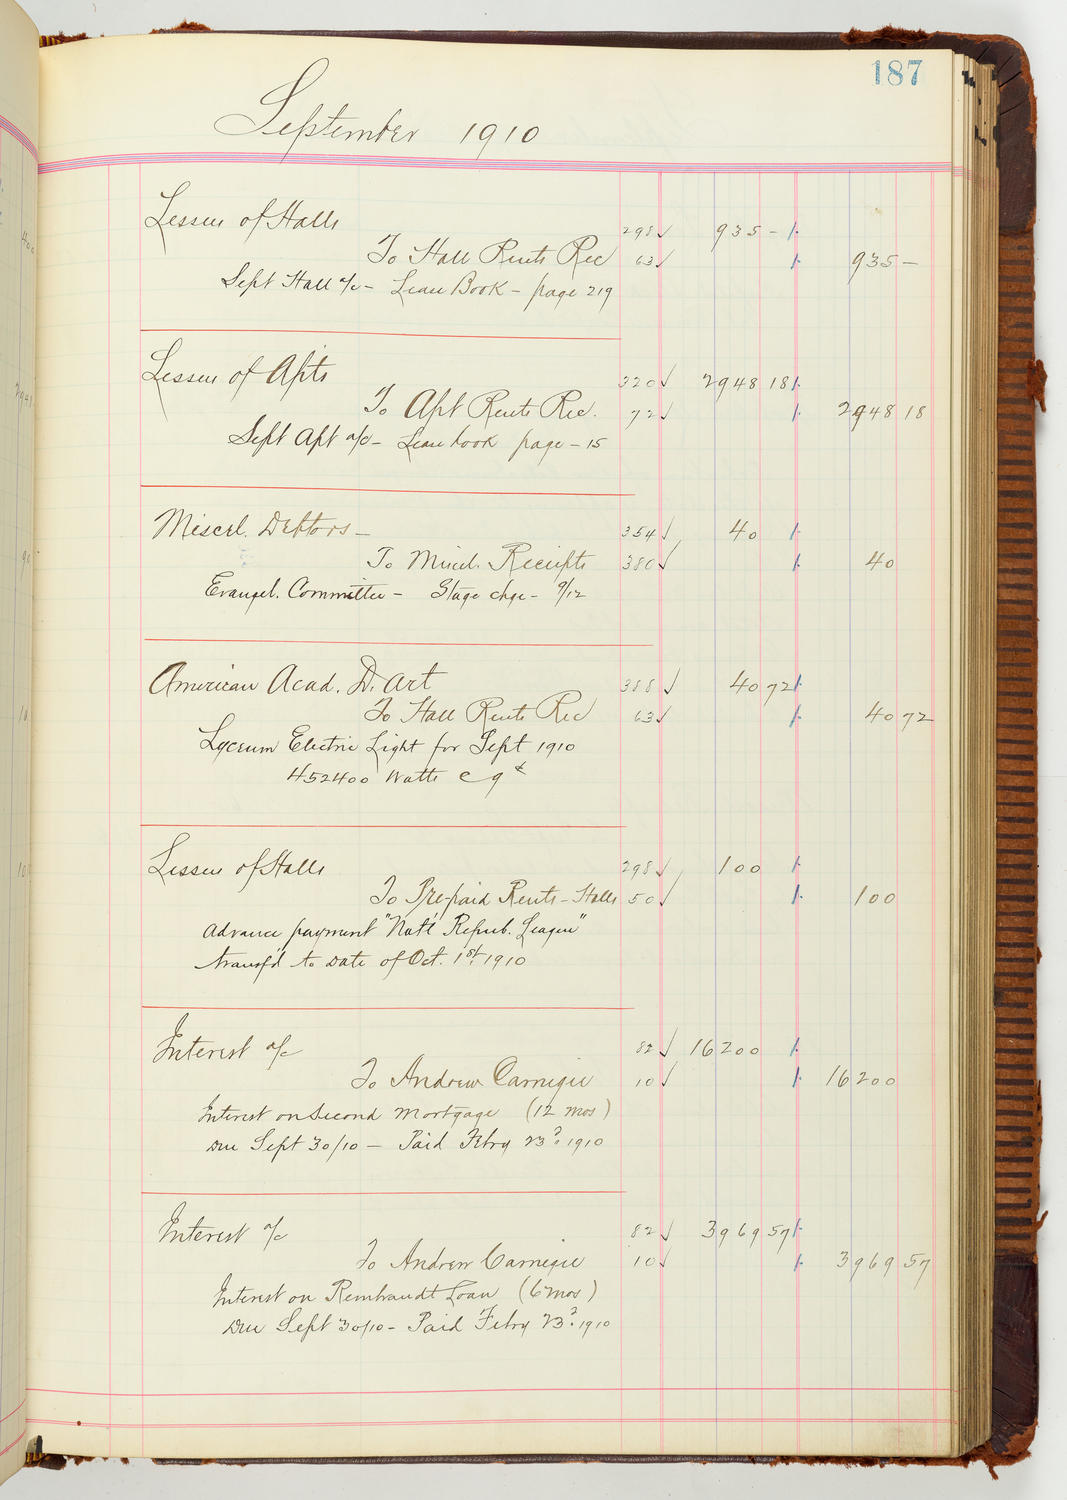 187
September 1910
Lessees of Halls 298 ✓ 935 –
To Hall Rents Rec 63 ✓ 935 –
Sept Hall a/c – Lease Book – page 219
Lessees of Apts 320 ✓ 2948 18
To Apt Rents Rec. 72 ✓ 2948 18
Sept Apt a/c – Lease book page – 15
Miscel. Debtors – 354 ✓ 40
To Miscl. Receipts 380 ✓ 40
Evangel. Committee – Stage chge – 9/12
American Acad. D. Art 388 ✓ 40 72
To Hall Rents Rec 63 ✓ 40 72
Lyceum Electric Light for Sept 1910
452400 Watts @ 9
Lessees of Halls 298 ✓ 100
To Pre-paid Rents – Halls 50 ✓ 100
Advance payment "Nat'l Repub. League"
transf'd to Date of Oct. 1st. 1910
Interest a/c 82 ✓ 16200
To Andrew Carnegie 10 ✓ 16200
Interest on Second Mortgage (12 mos)
Due Sept 30/10 – Paid Febry 23d. 1910
Interest a/c 82 ✓ 3969 57
To Andrew Carnegie 10 ✓ 3969 57
Interest on Rembrandt Loan (6 mos)
Due Sept 30/10 – Paid Febry 23d. 1910